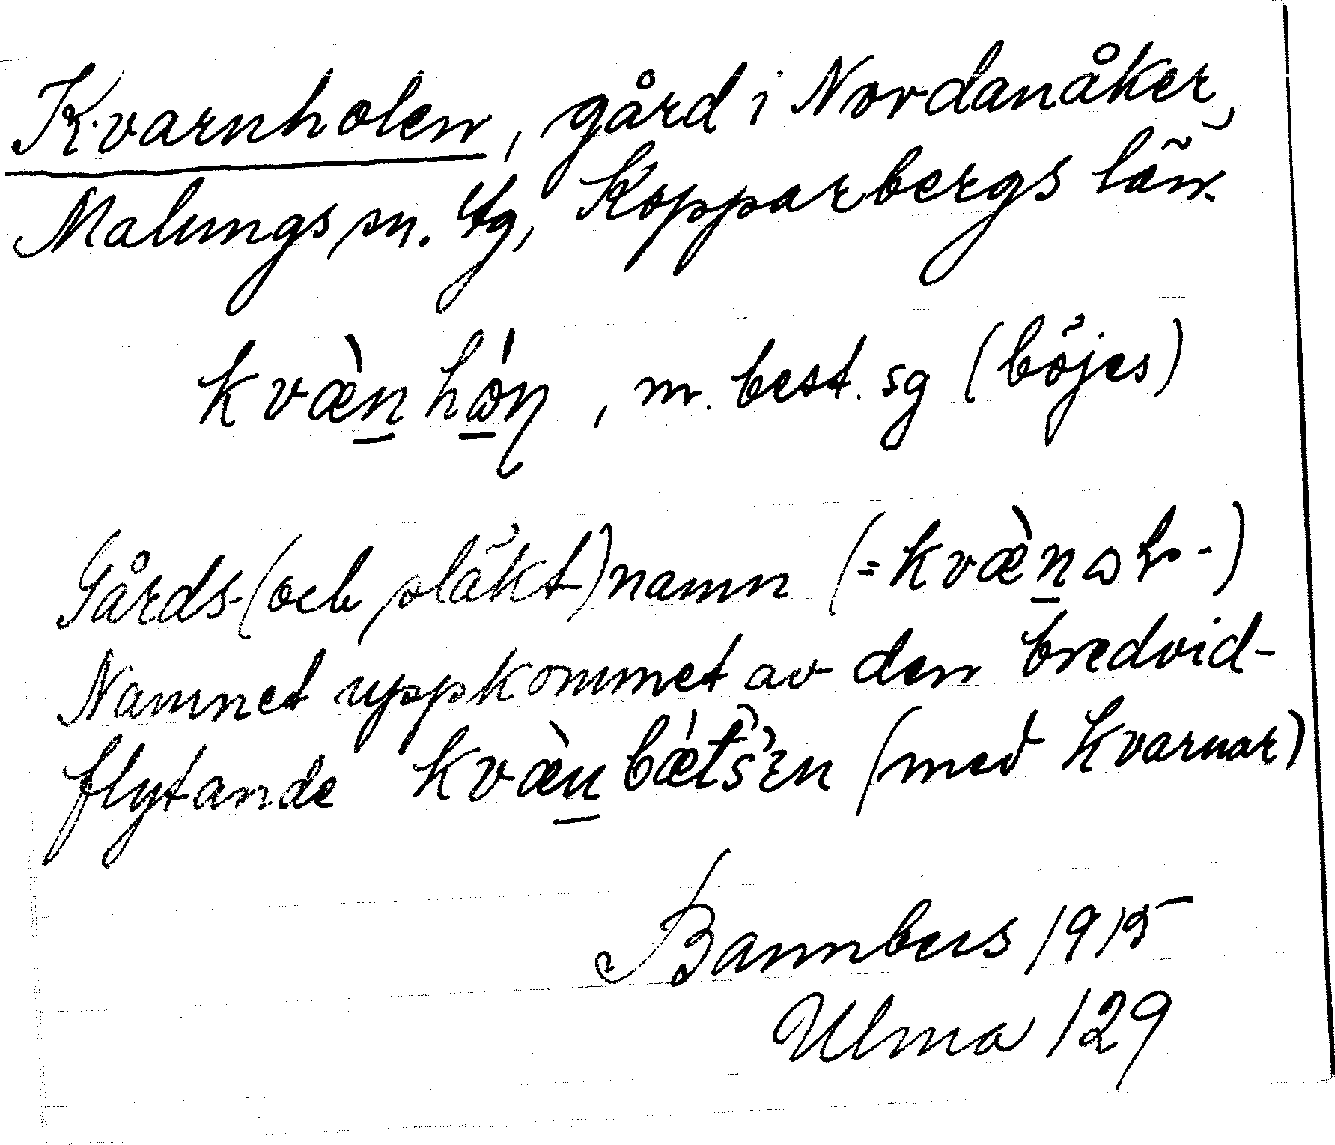 Kvarnholen, gård i Nordanåker,
Malungs sn. tg, Kopparbergs län.
kvæ̀n hǿn, m. best. sg (böjes)
Gårds-(och släkt)namn (= kvæ̀n ɷ h-)
Namnet uppkommet av den bredvid-
flytande kvæ̀n bǽts̀en (med kvarnar)
Bannbers 1915
Ulma 129